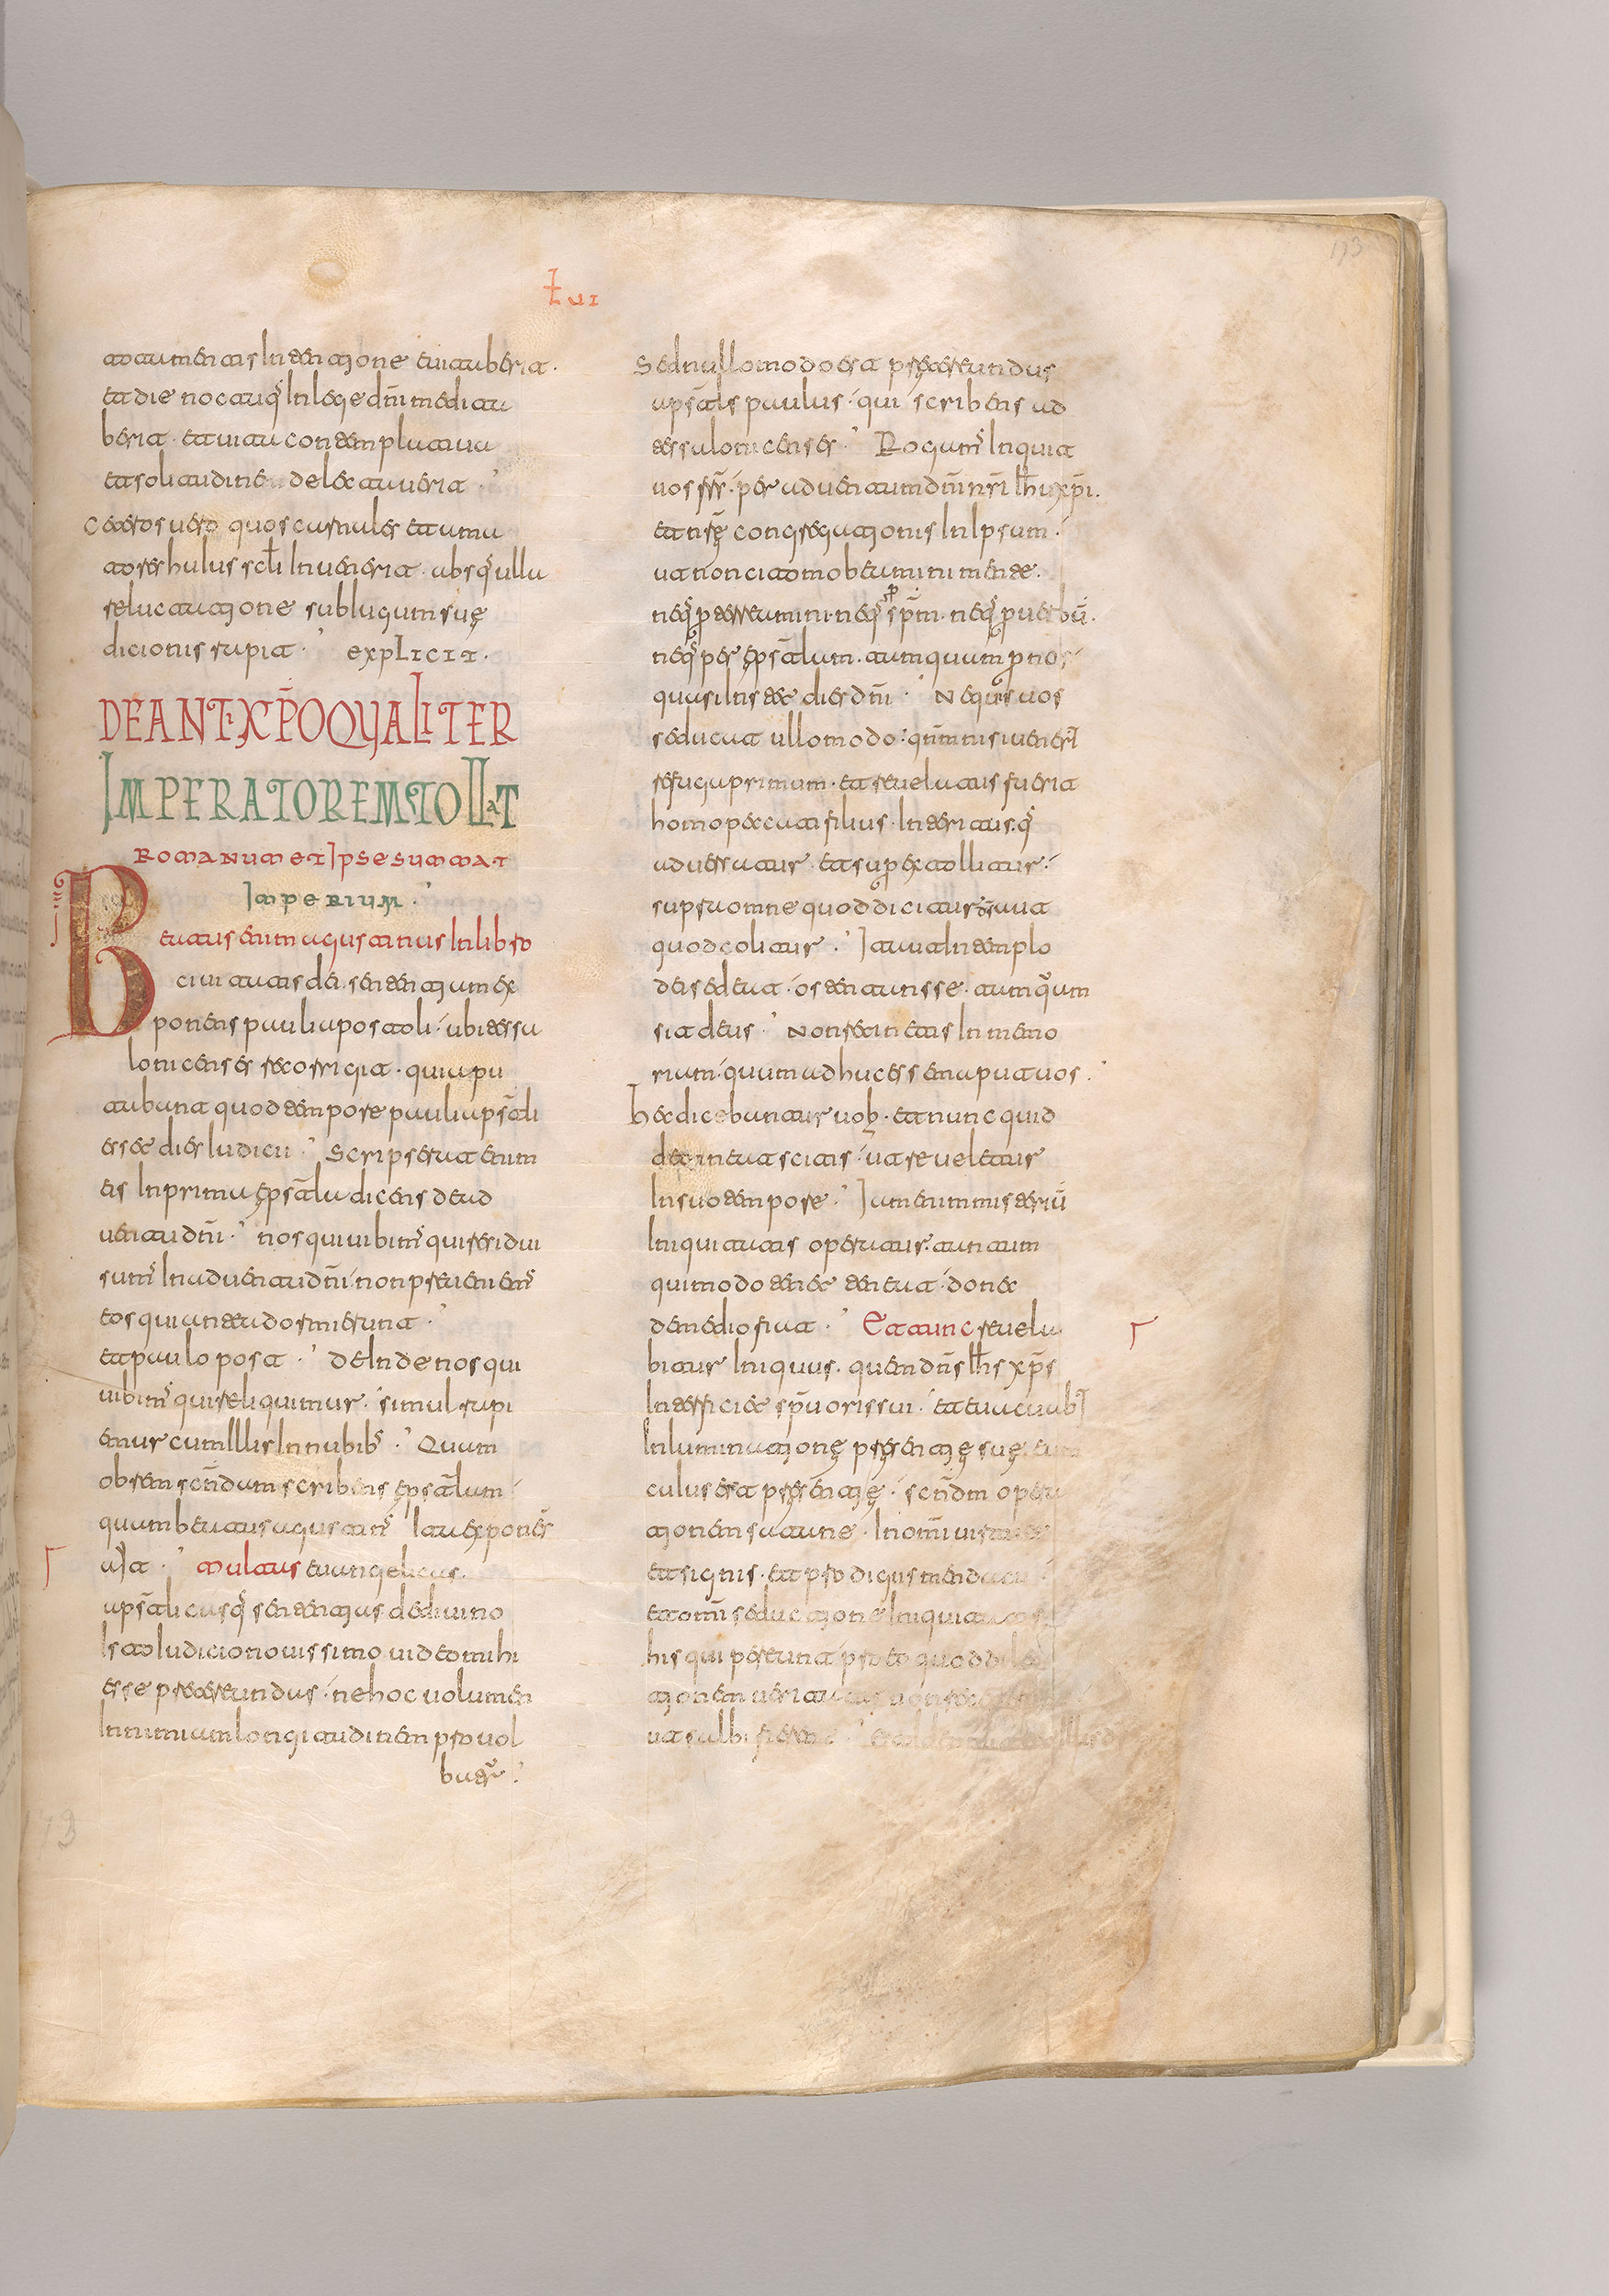 Intentjone euitaberit.
et die noctuq' In lege dñi medita
berit. et uita contemplatiua
et solitudine delectauerit.
Ceteros uero quos carnales et ama
tores huius scł̄i Inuenerit. absq' ulla
reluctatjone sub Iugum suę
dicionis rapit. explicit.
DE ANTIXP̄O QVALITER
IMPERATOREM TOLLAT
ROMANUM ET IPSE SUMMAT
IMPERIUM.
Beatus enim agustinus In libro
ciuitatis dei sententjam ex
ponens pauli apostoli. ubi tessa
lonicenses recorrigit. quia pu
tabant quod tempore pauli apsťli
esset dies Iudicii. Scripserat enim
eis In prima ępstła dicens de ad
uentu dñi. nos qui uibim' qui residui
sum' In aduentu dñi non preueniem'
eos qui ante dormierunt.
et paulo post. deInde nos qui
uibim' qui reliquimur. simul rapi
emur cum Illis In nubib'. Quam
ob rem scn̄dam scribens ępstłam
quam beatus agustin' Ita exponens
ait. multas euangelicas.
apstłicasq' sententjas de diuino
Isto Iudicio nouissimo uideo mihi
esse pretereundas. ne hoc uolumen
In nimiam longitudinem prouol
buatur.
Sed nullo modo est pretereundus
apstłs paulus. qui scribens ad
tessalonicenses. Rogam' Inquit
uos frr̄. per aduentum dñi nr̄i Ihū xp̄i.
et nrę̄ congregatjonis In Ipsum.
ut non cito mobeamini mente.
neq' p terreamini. neq' p sp̄m. neq' p uerbū.
neq' per ępstłam. tamquam p nos
quasi Instet dies dñi. Nequis uos
seducat ullo modo. qnm̄ nisi uenerit
refuga primum. et reuelatus fuerit
homo peccati filius. Interitus. q'
aduersatur et superextollitur.
supra omne quod dicitur ds̄ aut
quod colitur. Ita ut In templo
dei sedeat. ostentans se. tamquam
sit deus. Non retinetis In memo
riam. quum adhuc essem aput uos.
hec dicebantur uob. et nunc quid
detineat scitis. ut reueletur
In suo tempore. Iam enim misteriū
Iniquitatis operatur. tantum
qui modo tenet teneat. donec
de medio fiat. Et tunc reuela
bitur Iniquus. quem dns̄ Ihs̄ xps̄
Interficiet spū oris sui. et euacuabit
Inluminatjonę pręsentję suę. eum
cuIus est pręsentję. scn̄dm opera
tjonem satane. In omni uirtute
et signis. et prodigiis mendacii
et omni seductjone Iniquitatis
his qui pereunt pro eo quod dilec
tjonem ueritatis non receperunt
ut salbi fierent.